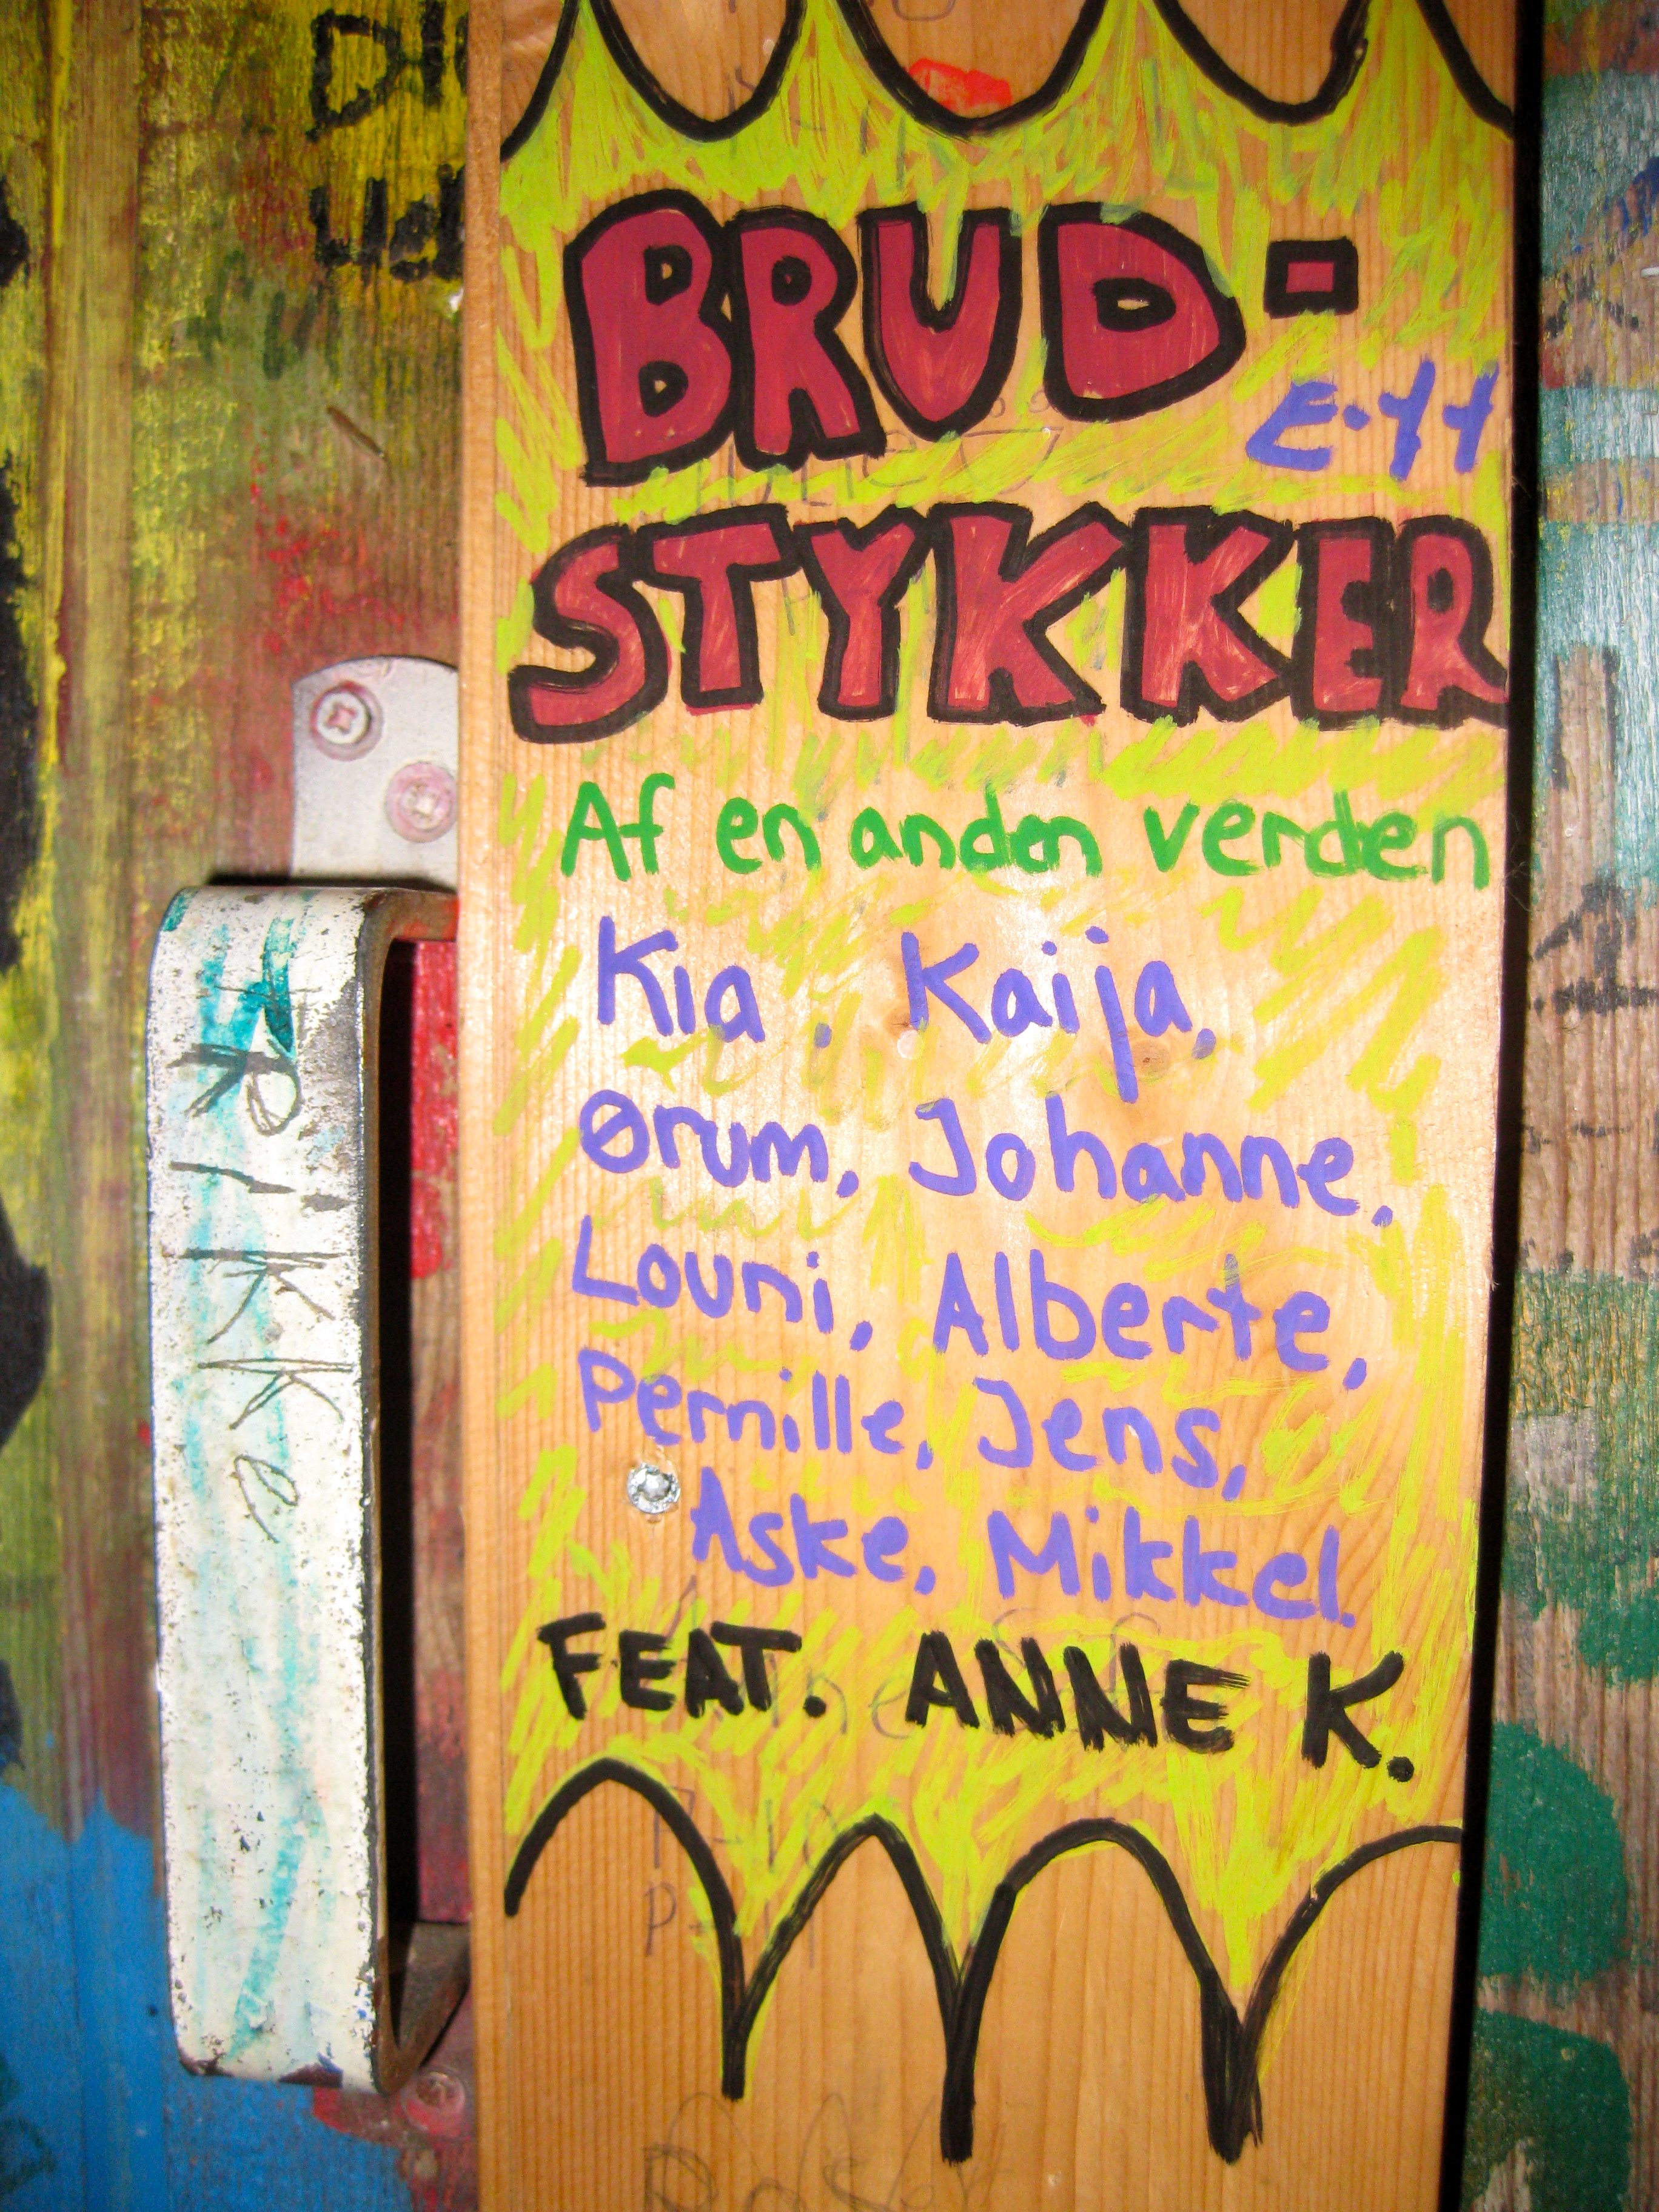 BRUD-
E.11
STYKKER
Af en anden verden
Kia, Kaija,
Ørum, Johanne,
Louni, Alberte,
Pernille, Jens,
Aske, Mikkel.
FEAT. ANNE K.
Rikke